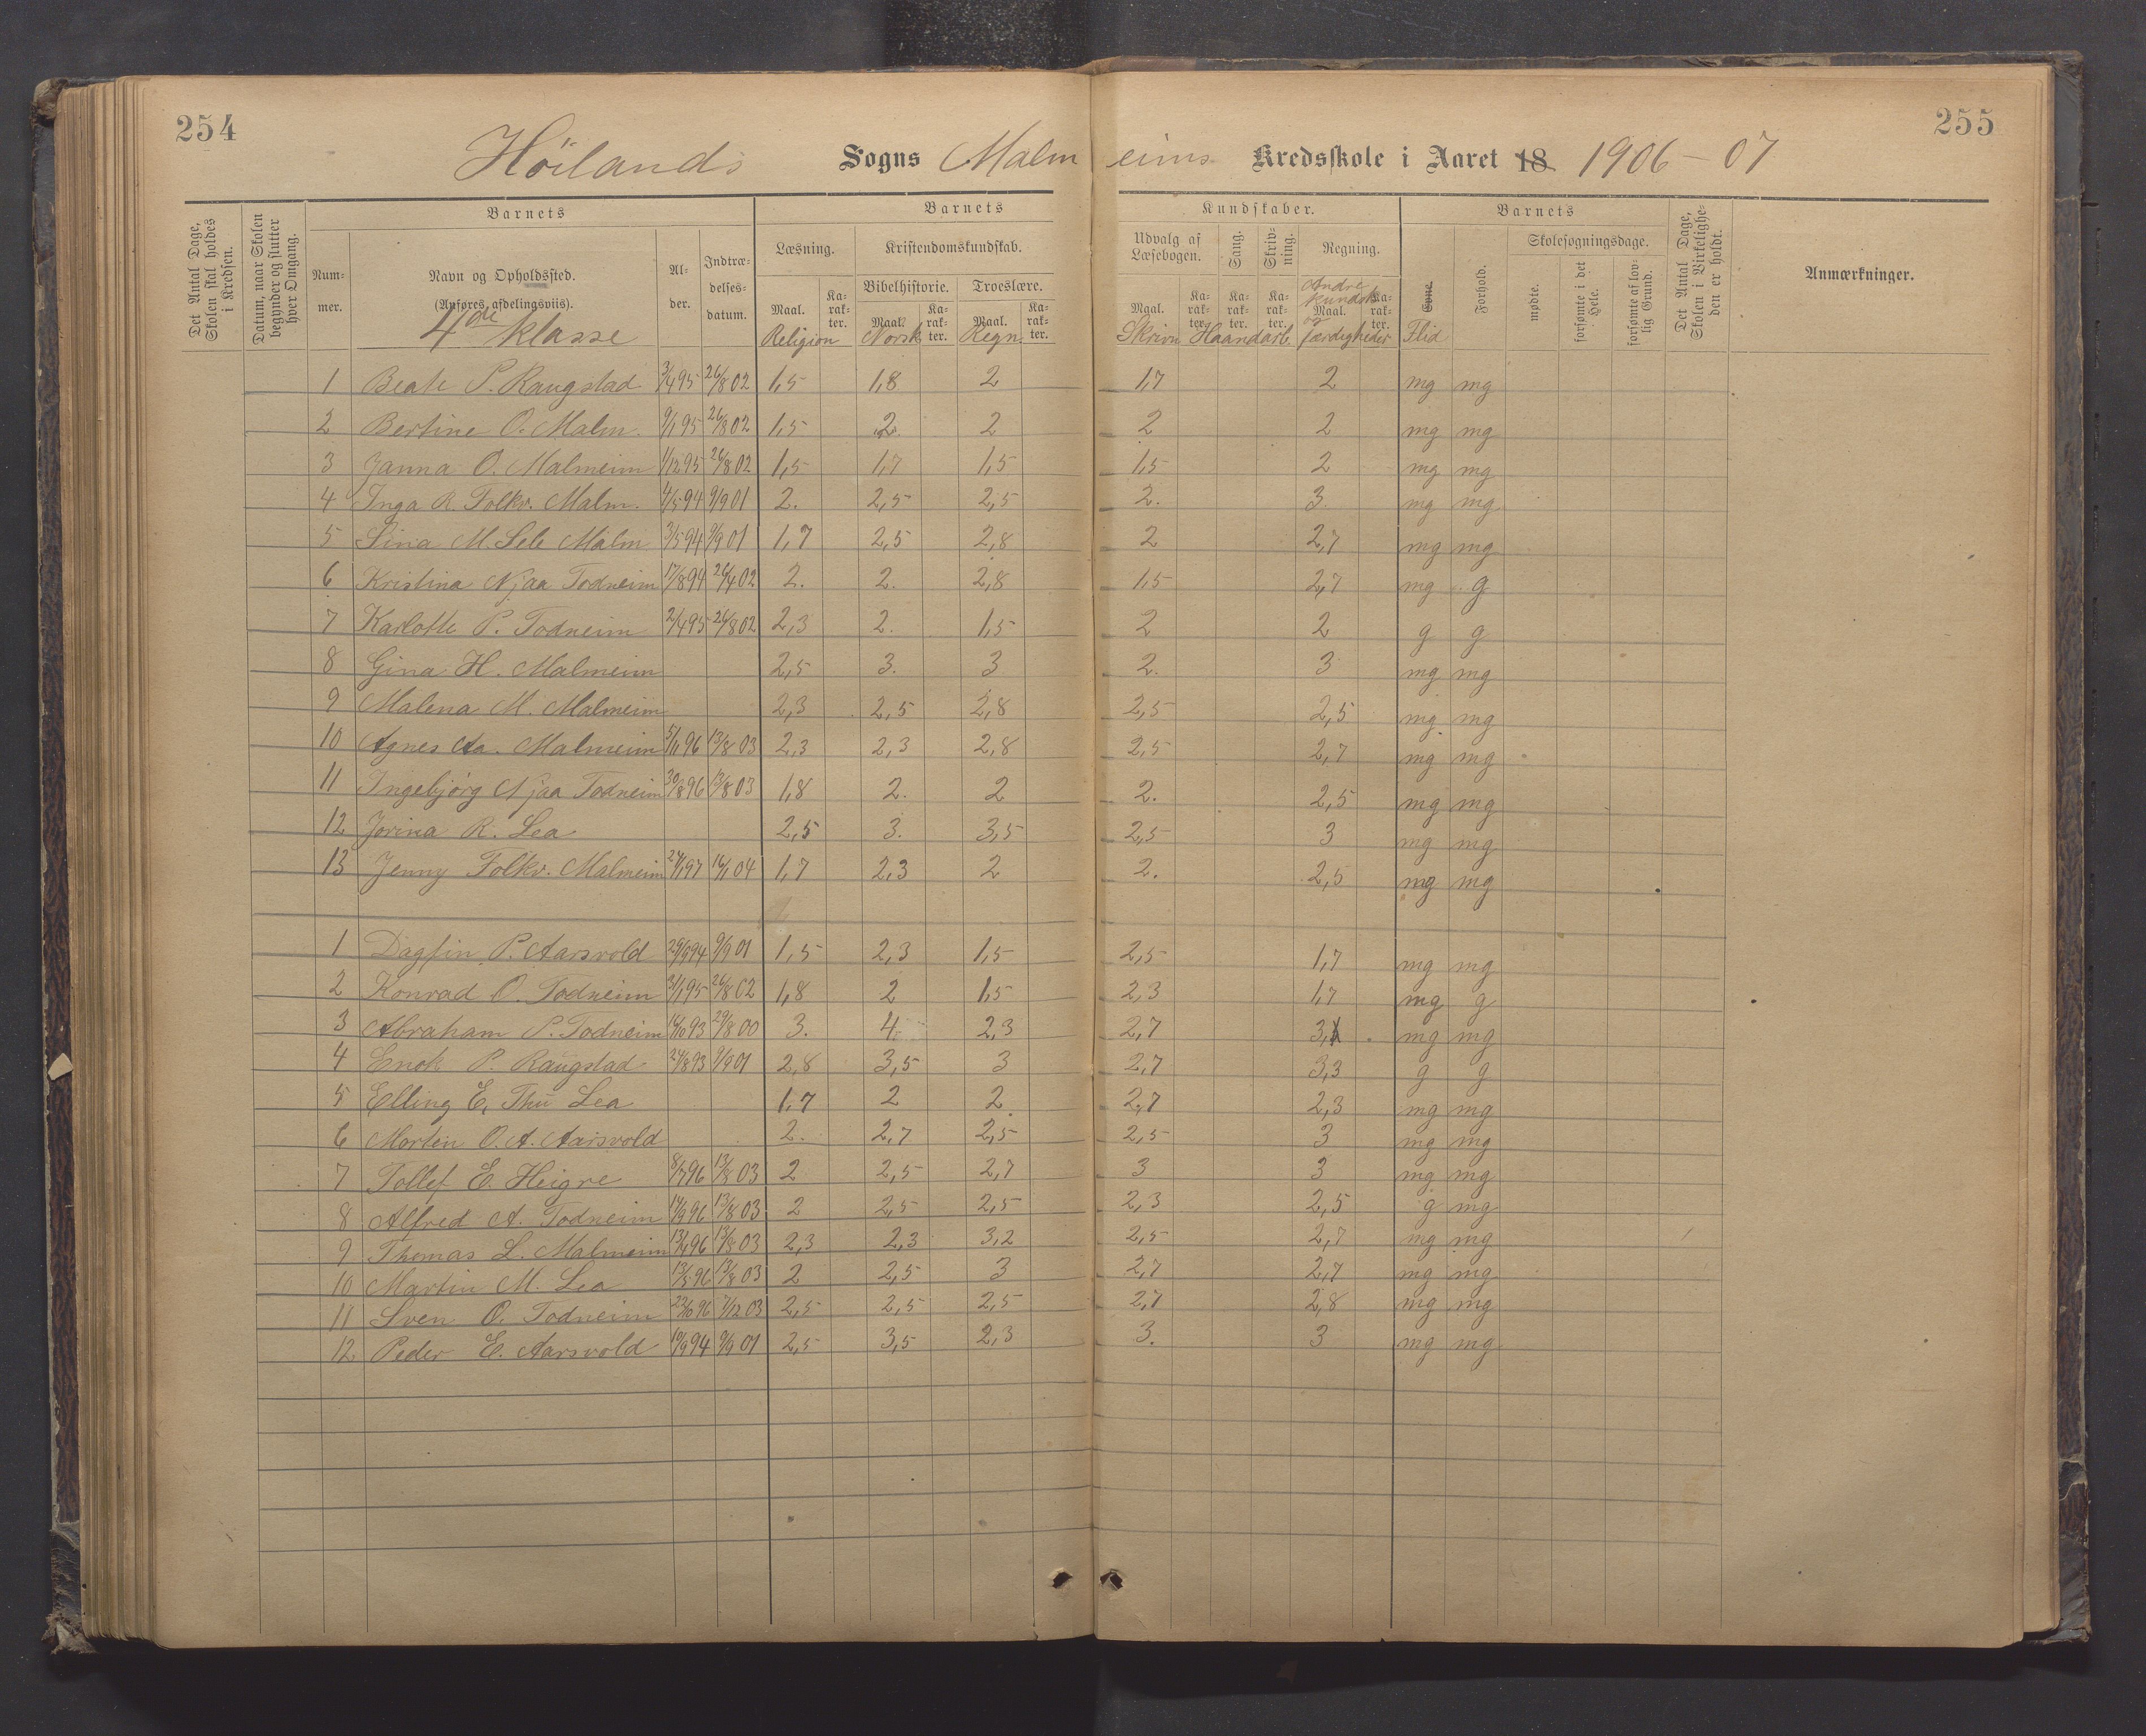 254
255
Höilands Sogns Malmeims Kredsskole i Aaret 18 1906-07
Det Antal Dage, Skolen skal holdes i Kredsen.
Datum, naar Skolen begynder og slutter hver Omgang.
Barnets
Barnets
Kundskaber.
Barnets
Det Antal Dage, Skolen i Virkeligheden er holdt.
Anmærkninger.
Nummer.
Navn og Opholdssted.
(Anføres afdelingsviis).
4de klasse
Alder.
Indtrædelsesdatum.
Læsning.
Kristendomskundskab.
Bibelhistorie.
Troeslære.
Udvalg af Læsebogen.
Sang.
Skrivning.
Regning.
Evne.
Forhold.
Skolesøgningsdage.
mødte.
forsømte i det Hele.
forsømte af lovlig Grund.
Maal. Karakter. Maal. Karakter. Maal. Karakter. Maal. Karakter. Karakter. Karakter. Maal. Karakter.
Religion Norsk Regn. Skrivn Haandarb. Andre kundsk. og færdigheder Flid
1 Beate P. Raugstad 3/4 95 26/8 02 1,5 1,8 2 1,7 2 mg mg
2 Bertine O. Malm. 9/1 95 26/8 02 1,5 2 2 2 2 mg mg
3 Janna O. Malmeim 1/12 95 26/8 02 1,5 1,7 1,5 1,5 2 mg mg
4 Inga R. Folkv. Malm. 4/5 94 9/9 01 2. 2,5 2,5 2. 3. mg mg
5 Sina M. Sele Malm 3/5 94 9/9 01 1,7 2,5 2,8 2 2,7 mg mg
6 Kristina Njaa Todneim 17/8 94 26/4 02 2. 2. 2,8 1,5 2,7 mg g
7 Karlotte P. Todneim 2/4 95 26/8 02 2,3 2. 1,5 2 2 g g
8 Gina H. Malmeim 2,5 3. 3 2. 3 mg mg
9 Malena M. Malmeim 2,3 2,5 2,8 2,5 2,5 mg mg
10 Agnes Aa. Malmeim 5/11 96 13/8 03 2,3 2,3 2,8 2,5 2,7 mg mg
11 Ingebjørg Njaa Todneim 30/8 96 13/8 03 1,8 2. 2 2. 2,5 mg mg
12 Jorina R. Lea 2,5 3. 3,5 2,5 3 mg mg
13 Jenny Folkv. Malmeim 24/1 97 16/1 04 1,7 2,3 2 2. 2,5 mg mg
1 Dagfin P. Aarsvold 29/9 94 9/9 01 1,5 2,3 1,5 2,5 1,7 mg mg
2 Konrad O. Todneim 31/1 95 26/8 02 1,8 2 1,5 2,3 1,7 mg g
3 Abraham P. Todneim 16/10 93 29/8 00 3. 4. 2,3 2,7 3, mg mg
4 Enok P. Raugstad 24/8 93 9/9 01 2,8 3,5 3 2,7 3,3 g g
5 Elling E. Thu Lea 1,7 2 2 2,7 2,3 mg mg
6 Morten O. A. Aarsvold 2. 2,7 2,5 2,5 3 mg mg
7 Tollef E. Heigre 8/7 96 13/8 03 2 2,5 2,7 3 3 mg mg
8 Alfred A. Todneim 14/9 96 13/8 03 2 2,5 2,5 2,3 2,5 g mg
9 Thomas L. Malmeim 13/4 96 13/8 03 2,3 2,3 3,2 2,5 2,7 mg mg
10 Martin M. Lea 13/5 96 13/8 03 2 2,5 3 2,7 2,7 mg mg
11 Sven O. Todneim 22/10 96 7/12 03 2,5 2,5 2,5 2,7 2,8 mg mg
12 Peder E. Aarsvold 19/9 94 9/9 01 2,5 3,5 2,3 3. 3 mg mg